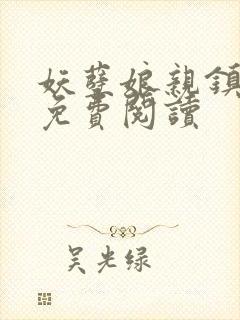 妖孽娘親鎮
免費閱讀
吴光绿